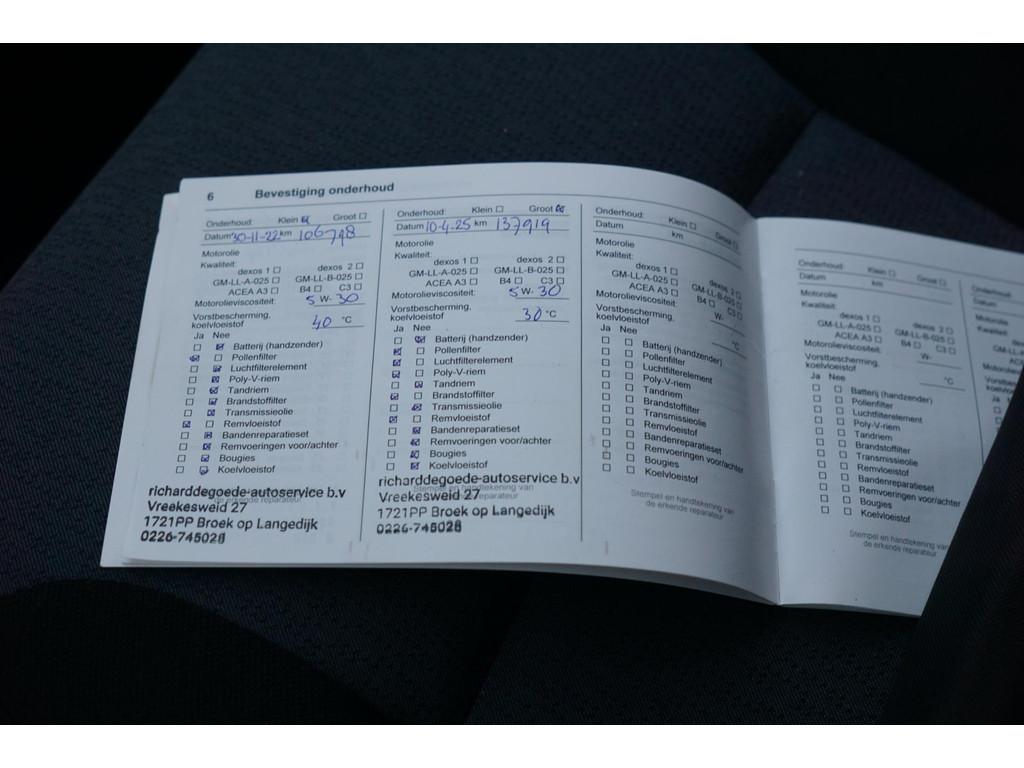 6 Bevestiging onderhoud
Onderhoud: Klein Groot
Datum 30-11-22 km 106748
Motorolie
Kwaliteit:
dexos 1 dexos 2
GM-LL-A-025 GM-LL-B-025
ACEA A3 B4 C3
Motorolieviscositeit: 5 W- 30
Vorstbescherming,
koelvloeistof 40 °C
Ja Nee
Batterij (handzender)
Pollenfilter
Luchtfilterelement
Poly-V-riem
Tandriem
Brandstoffilter
Transmissieolie
Remvloeistof
Bandenreparatieset
Remvoeringen voor/achter
Bougies
Koelvloeistof
richarddegoede-autoservice b.v
de erkende reparateur
Vreekesweid 27
1721PP Broek op Langedijk
0226-745028
Onderhoud: Klein Groot
Datum 10-4-25 km 137919
Motorolie
Kwaliteit:
dexos 1 dexos 2
GM-LL-A-025 GM-LL-B-025
ACEA A3 B4 C3
Motorolieviscositeit: 5 W- 30
Vorstbescherming,
koelvloeistof 30 °C
Ja Nee
Batterij (handzender)
Pollenfilter
Luchtfilterelement
Poly-V-riem
Tandriem
Brandstoffilter
Transmissieolie
Remvloeistof
Bandenreparatieset
Remvoeringen voor/achter
Bougies
Koelvloeistof
richarddegoede-autoservice b.v
Stempel en handtekening van
Vreekesweid 27
1721PP Broek op Langedijk
0226-745028
Onderhoud: Klein Groot
Datum km
Motorolie
Kwaliteit:
dexos 1 dexos 2
GM-LL-A-025 GM-LL-B-025
ACEA A3 B4 C3
Motorolieviscositeit: W-
Vorstbescherming,
koelvloeistof °C
Ja Nee
Batterij (handzender)
Pollenfilter
Luchtfilterelement
Poly-V-riem
Tandriem
Brandstoffilter
Transmissieolie
Remvloeistof
Bandenreparatieset
Remvoeringen voor/achter
Bougies
Koelvloeistof
Stempel en handtekening van
de erkende reparateur
Onderhoud: Klein Groot
Datum km
Motorolie
Kwaliteit:
dexos 1 dexos 2
GM-LL-A-025 GM-LL-B-025
ACEA A3 B4 C3
Motorolieviscositeit: W-
Vorstbescherming,
koelvloeistof °C
Ja Nee
Batterij (handzender)
Pollenfilter
Luchtfilterelement
Poly-V-riem
Tandriem
Brandstoffilter
Transmissieolie
Remvloeistof
Bandenreparatieset
Remvoeringen voor/achter
Bougies
Koelvloeistof
Stempel en handtekening van
de erkende reparateur
Datum
Motorolie
Ja